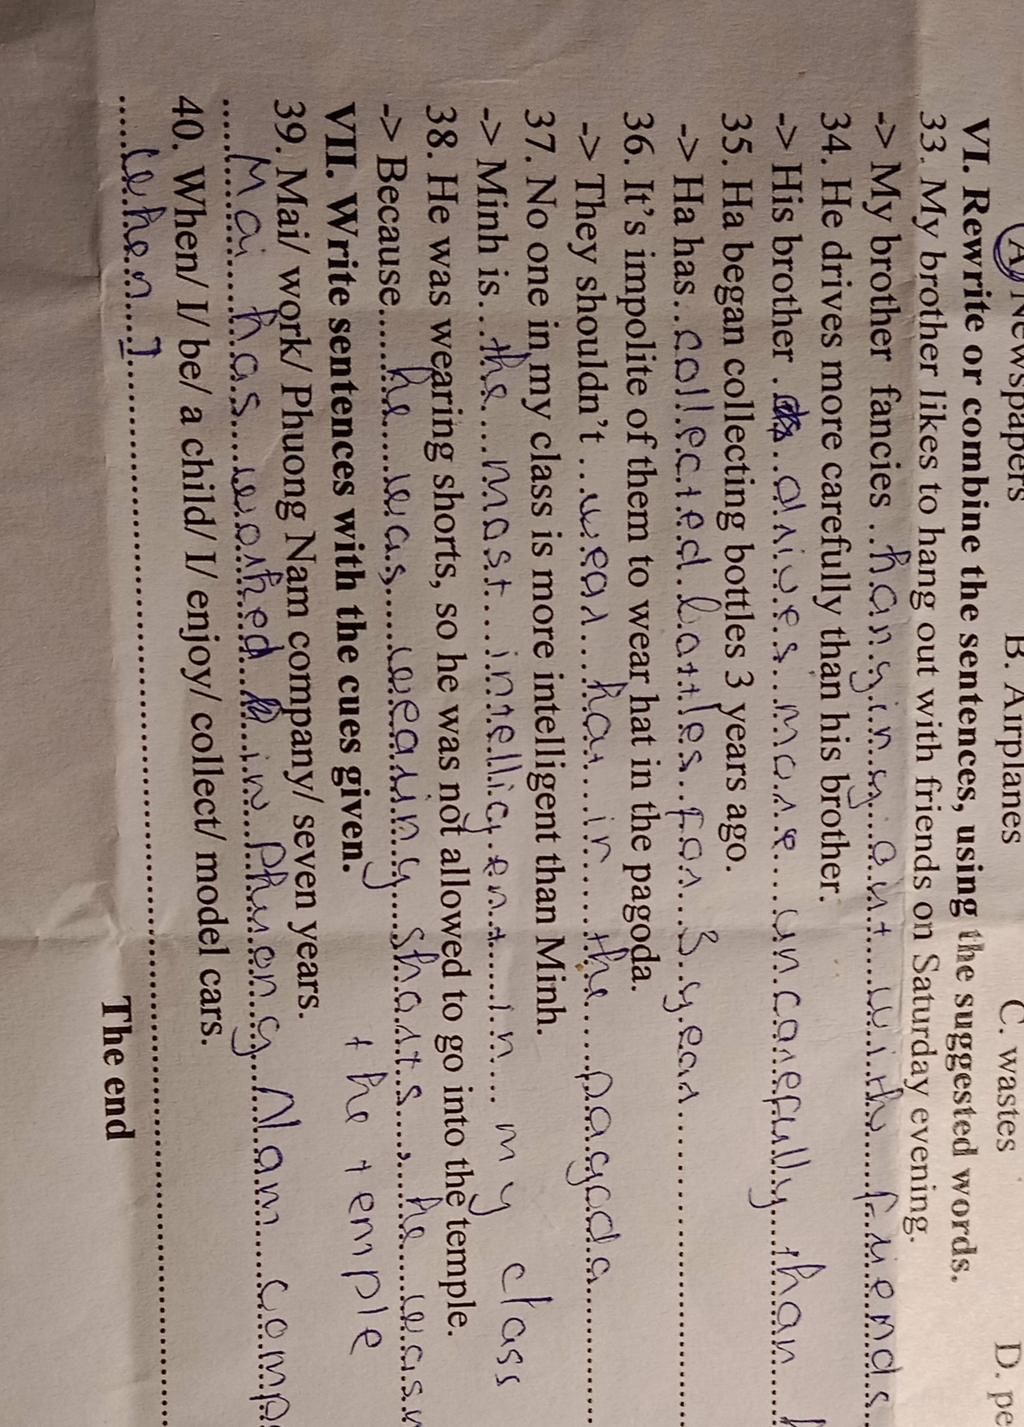 A Newspapers B. Airplanes C. wastes D. pe
VI. Rewrite or combine the sentences, using the suggested words.
33. My brother likes to hang out with friends on Saturday evening.
-> My brother fancies hanging out with friends
34. He drives more carefully than his brother.
-> His brother drives more uncarefully than
35. Ha began collecting bottles 3 years ago.
-> Ha has collected bottles for 3 year
36. It's impolite of them to wear hat in the pagoda.
-> They shouldn't wear hat in the pagoda
37. No one in my class is more intelligent than Minh.
-> Minh is the most intelligent in my class
38. He was wearing shorts, so he was not allowed to go into the temple.
-> Because he was wearing shorts, he wasn
the temple
VII. Write sentences with the cues given.
39. Mai/ work/ Phuong Nam company/ seven years.
Mai has worked in Phuong Nam comp
40. When/ I/ be/ a child/ I/ enjoy/ collect/ model cars.
When I
The end